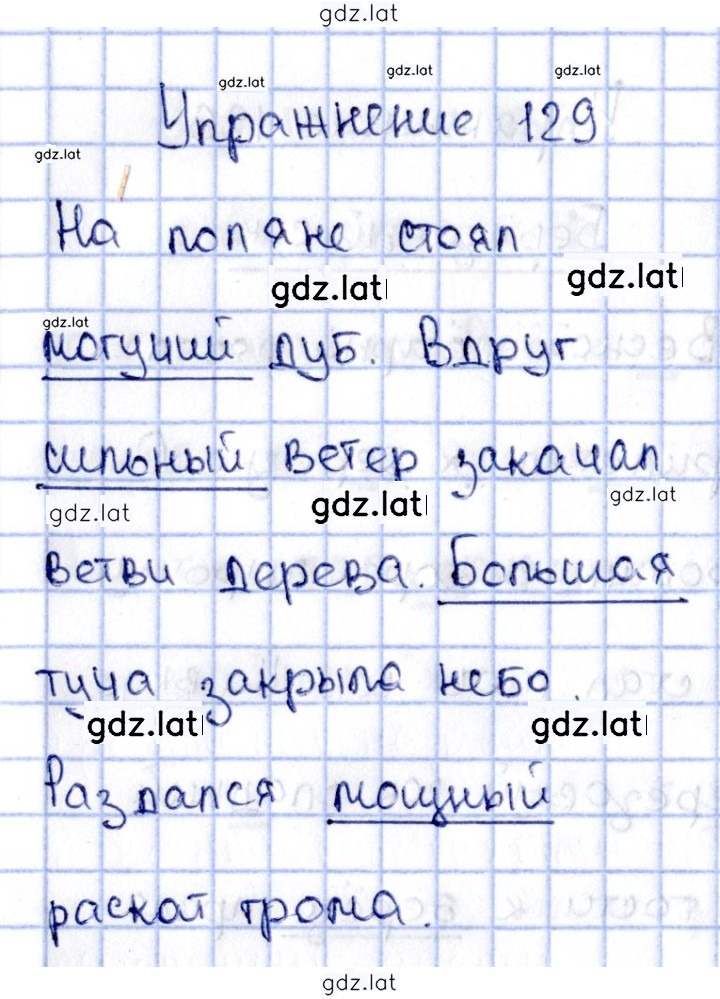 gdz.lat
gdz.lat gdz.lat gdz.lat
Упражнение 129
gdz.lat
На поляне стоял
gdz.lat gdz.lat
gdz.lat
могучий дуб. Вдруг
сильный ветер закачал
gdz.lat gdz.lat gdz.lat
ветви дерева. Большая
туча закрыла небо.
gdz.lat gdz.lat
Раздался мощный
раскат грома.
gdz.lat